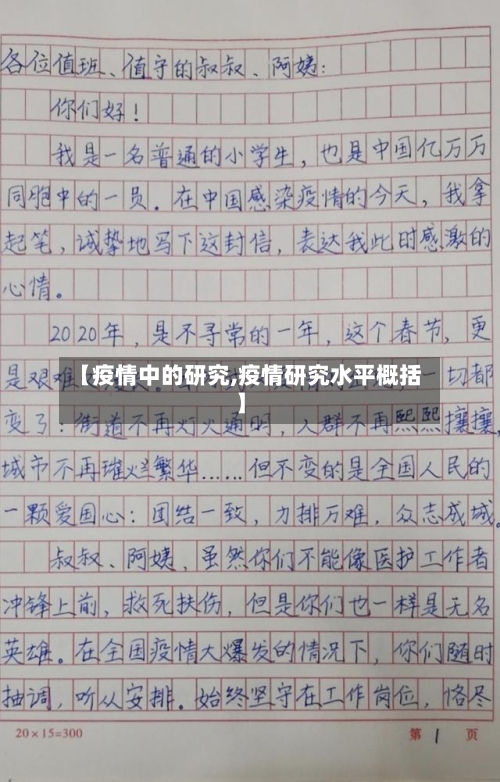 各位值班、值守的叔叔、阿姨:
你们好!
我是一名普通的小学生,也是中国亿万万
同胞中的一员。在中国感染疫情的今天,我拿
起笔,诚挚地写下这封信,表达我此时感激的
心情。
2020年,是不寻常的一年,这个春节,更
是艰难
【疫情中的研究,疫情研究水平概括
】
一切都
变了:街道不再灯火通明,人群不再熙熙攘攘,
城市不再璀灿繁华......但不变的是全国人民的
一颗爱国心:团结一致,力排万难,众志成城。
叔叔、阿姨,虽然你们不能像医护工作者
冲锋上前,救死扶伤,但是你们也一样是无名
英雄。在全国疫情大爆发的情况下,你们随时
抽调,听从安排。始终坚守在工作岗位,恪尽
20×15=300
第1页